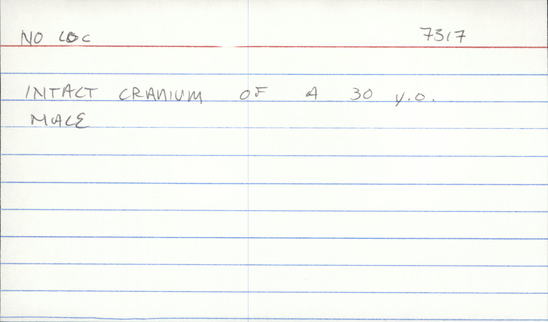 NO LOC 7317
INTACT CRANIUM OF A 30 y.o.
MALE